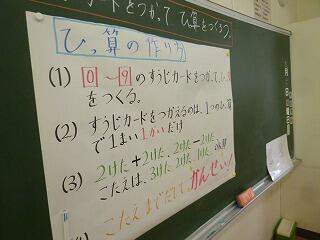 カードをつかって ひっ算をつくろう。
ひっ算の作り方
(1) 0〜9のすうじカードをつかって、ひっ算
をつくる。
(2) すうじカードをつかえるのは、1つのひっ算
で1まい1かいだけ
(3) 2けた+2けた、2けた-2けた
こたえは、3けた、2けた、1けた
こたえまでだして、かんせい!